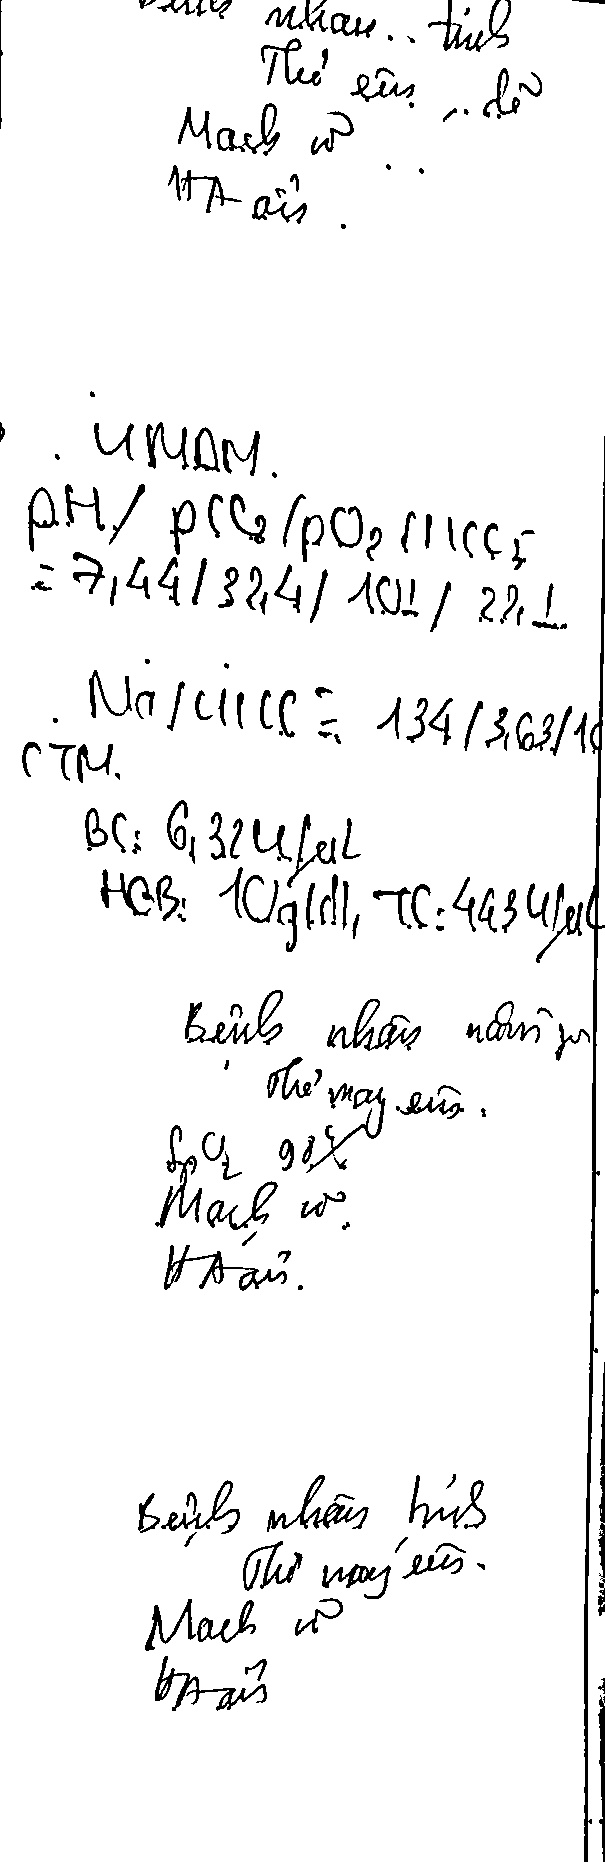 Bệnh nhân .. tỉnh
Thở êm .. dễ
Mạch rõ ..
HA ổn .
. KMĐM.
pH/ pCO2/pO2/HCO3
= 7,44/32,4/ 101/ 22,1
. Na/K/Cl = 134/3,63/10
CTM.
BC: 6,32K/µL
HGB: 10g/dl, TC: 443K/µL
Bệnh nhân nằm yên
Thở máy êm.
SpO2 98%
Mạch rõ.
HA ổn.
Bệnh nhân tỉnh
Thở máy êm.
Mạch rõ
HA ổn